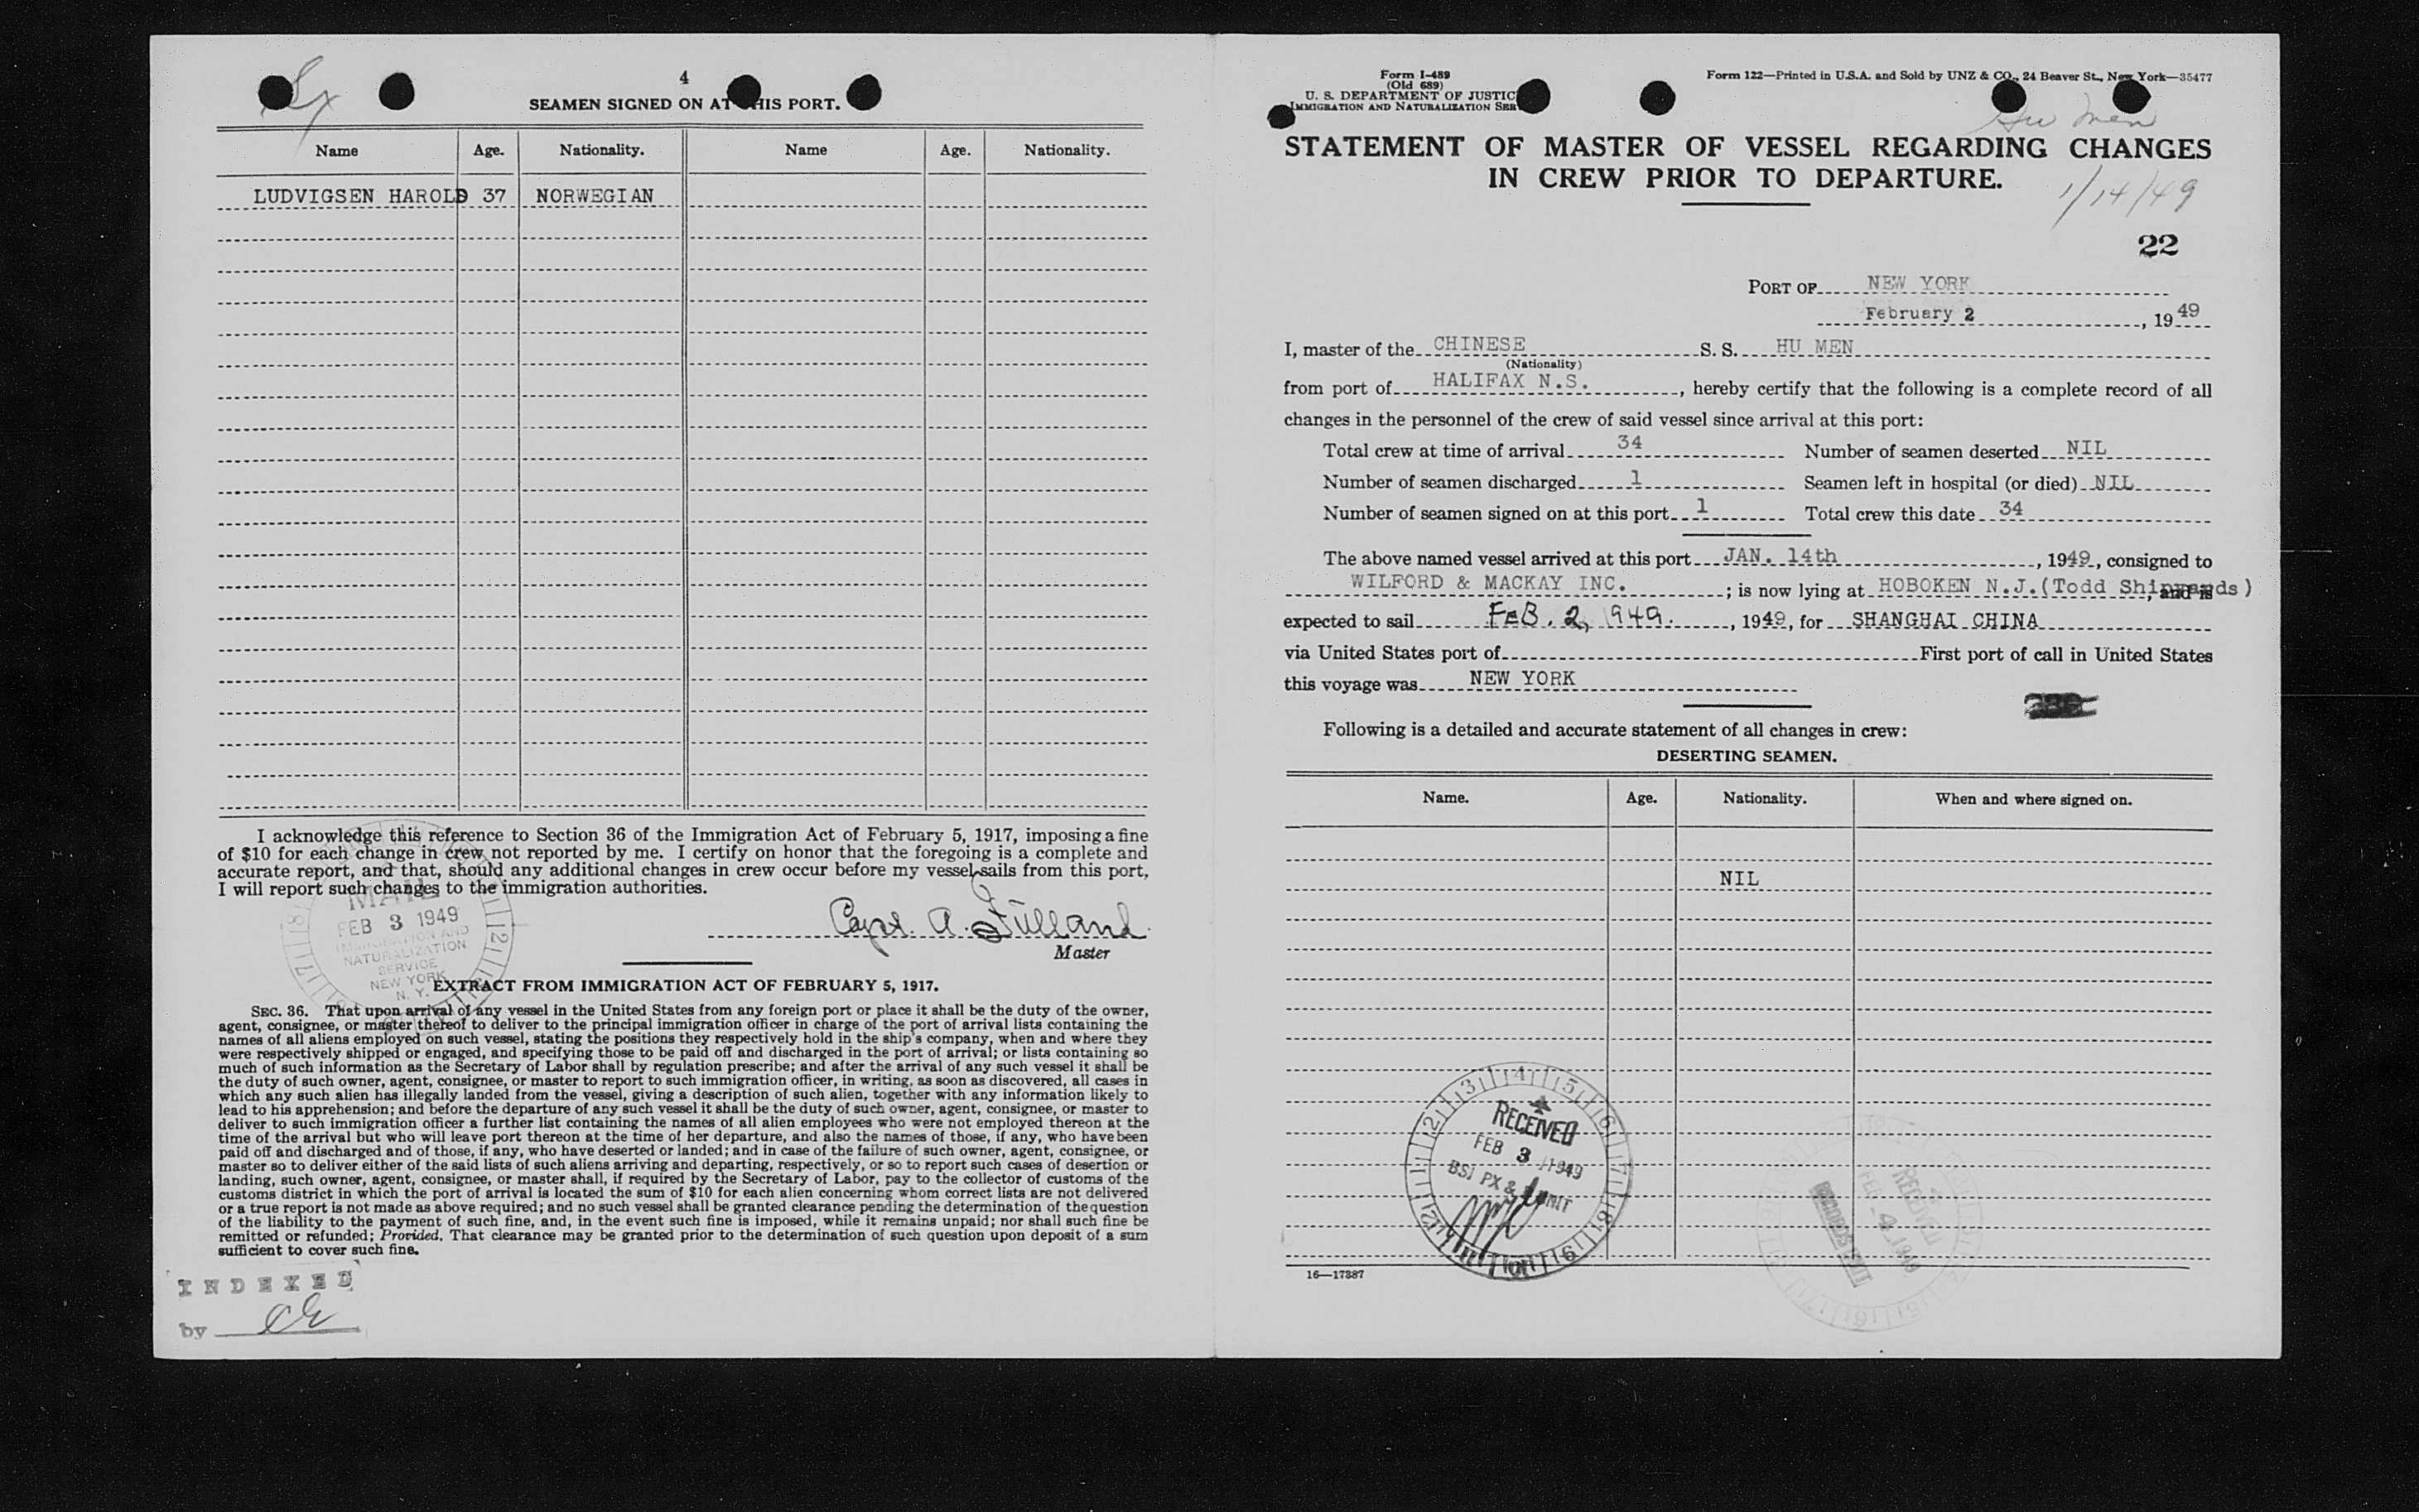 4
SEAMEN SIGNED ON AT THIS PORT.
Name Age. Nationality. Name Age. Nationality.
LUDVIGSEN HAROLD 37 NORWEGIAN
I acknowledge this reference to Section 36 of the Immigration Act of February 5, 1917, imposing a fine
of $10 for each change in crew not reported by me. I certify on honor that the foregoing is a complete and
accurate report, and that, should any additional changes in crew occur before my vessel sails from this port,
I will report such changes to the immigration authorities.
MAIL
FEB 3 1949
IMMIGRATION AND
NATURALIZATION
SERVICE
NEW YORK
N. Y.
Capt. A.
Master
EXTRACT FROM IMMIGRATION ACT OF FEBRUARY 5, 1917.
SEC. 36. That upon arrival of any vessel in the United States from any foreign port or place it shall be the duty of the owner,
agent, consignee, or master thereof to deliver to the principal immigration officer in charge of the port of arrival lists containing the
names of all aliens employed on such vessel, stating the positions they respectively hold in the ship's company, when and where they
were respectively shipped or engaged, and specifying those to be paid off and discharged in the port of arrival; or lists containing so
much of such information as the Secretary of Labor shall by regulation prescribe; and after the arrival of any such vessel it shall be
the duty of such owner, agent, consignee, or master to report to such immigration officer, in writing, as soon as discovered, all cases in
which any such alien has illegally landed from the vessel, giving a description of such alien, together with any information likely to
lead to his apprehension; and before the departure of any such vessel it shall be the duty of such owner, agent, consignee, or master to
deliver to such immigration officer a further list containing the names of all alien employees who were not employed thereon at the
time of the arrival but who will leave port thereon at the time of her departure, and also the names of those, if any, who have been
paid off and discharged and of those, if any, who have deserted or landed; and in case of the failure of such owner, agent, consignee, or
master so to deliver either of the said lists of such aliens arriving and departing, respectively, or so to report such cases of desertion or
landing, such owner, agent, consignee, or master shall, if required by the Secretary of Labor, pay to the collector of customs of the
customs district in which the port of arrival is located the sum of $10 for each alien concerning whom correct lists are not delivered
or a true report is not made as above required; and no such vessel shall be granted clearance pending the determination of the question
of the liability to the payment of such fine, and, in the event such fine is imposed, while it remains unpaid; nor shall such fine be
remitted or refunded; Provided, That clearance may be granted prior to the determination of such question upon deposit of a sum
sufficient to cover such fine.
INDEXED
by
Form I-489
(Old 689)
U. S. DEPARTMENT OF JUSTIC
IMMIGRATION AND NATURALIZATION SER
Form 122—Printed in U.S.A. and Sold by UNZ & CO., 24 Beaver St., New York—35477
Hu Men
STATEMENT OF MASTER OF VESSEL REGARDING CHANGES
IN CREW PRIOR TO DEPARTURE.
1/14/49
22
PORT OF NEW YORK
February 2, 1949
I, master of the CHINESE S. S. HU MEN
(Nationality)
from port of HALIFAX N.S., hereby certify that the following is a complete record of all
changes in the personnel of the crew of said vessel since arrival at this port:
Total crew at time of arrival 34 Number of seamen deserted NIL
Number of seamen discharged 1 Seamen left in hospital (or died) NIL
Number of seamen signed on at this port 1 Total crew this date 34
The above named vessel arrived at this port JAN. 14th, 1949, consigned to
WILFORD & MACKAY INC.; is now lying at HOBOKEN N.J.(Todd Shipyards), and is
expected to sail FEB. 2, 1949., 1949, for SHANGHAI CHINA
via United States port of First port of call in United States
this voyage was NEW YORK
Following is a detailed and accurate statement of all changes in crew:
DESERTING SEAMEN.
Name. Age. Nationality. When and where signed on.
NIL
RECEIVED
FEB 3 1949
BSI PX &
RECEIVED
FEB 4 1949
16—17387